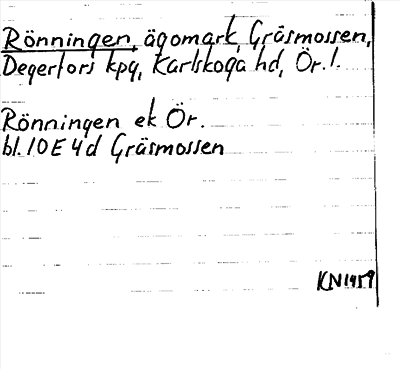 Rönningen, ägomark, Gräsmossen,
Degerfors kpg, Karlskoga hd, Ör. l.
Rönningen ek Ör.
bl. 10E 4d Gräsmossen
KN1959